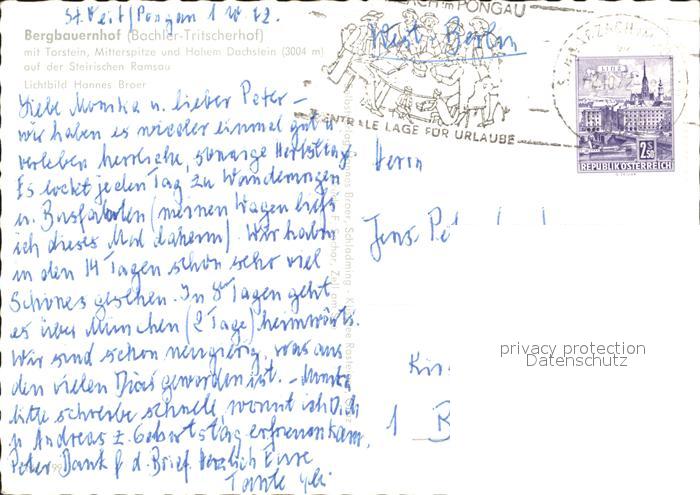 St. Veit/Pongau 1.10.72.
Bergbauernhof (Bachler-Tritscherhof)
mit Torstein, Mitterspitze und Hohem Dachstein (3004 m)
auf der Steirischen Ramsau
Lichtbild Hannes Broer
Liebe Monika u. lieber Peter –
wir haben es wieder einmal gut u.
verleben herrliche, sonnige Herbsttage.
Es lockt jeden Tag zu Wanderungen
u. Busfahrten (meinen Wagen ließ
ich dieses Mal daheim). Wir haben
in den 14 Tagen schon sehr viel
Schönes gesehen. In 8 Tagen geht
es über München (2 Tage) heimwärts.
Wir sind schon neugierig, was aus
den vielen Dias geworden ist. – Monika
bitte schreibe schnell, womit ich Dich
u. Andreas z. Geburtstag erfreuen kann,
Peter Dank f. d. Brief. Herzlich Eure
Tante
PONGAU
ZENTRALE LAGE FÜR URLAUBE
West-Berlin
LINZ
2.50
REPUBLIK ÖSTERREICH
Herrn
Jens-Pet
1 B
privacy protection
Datenschutz